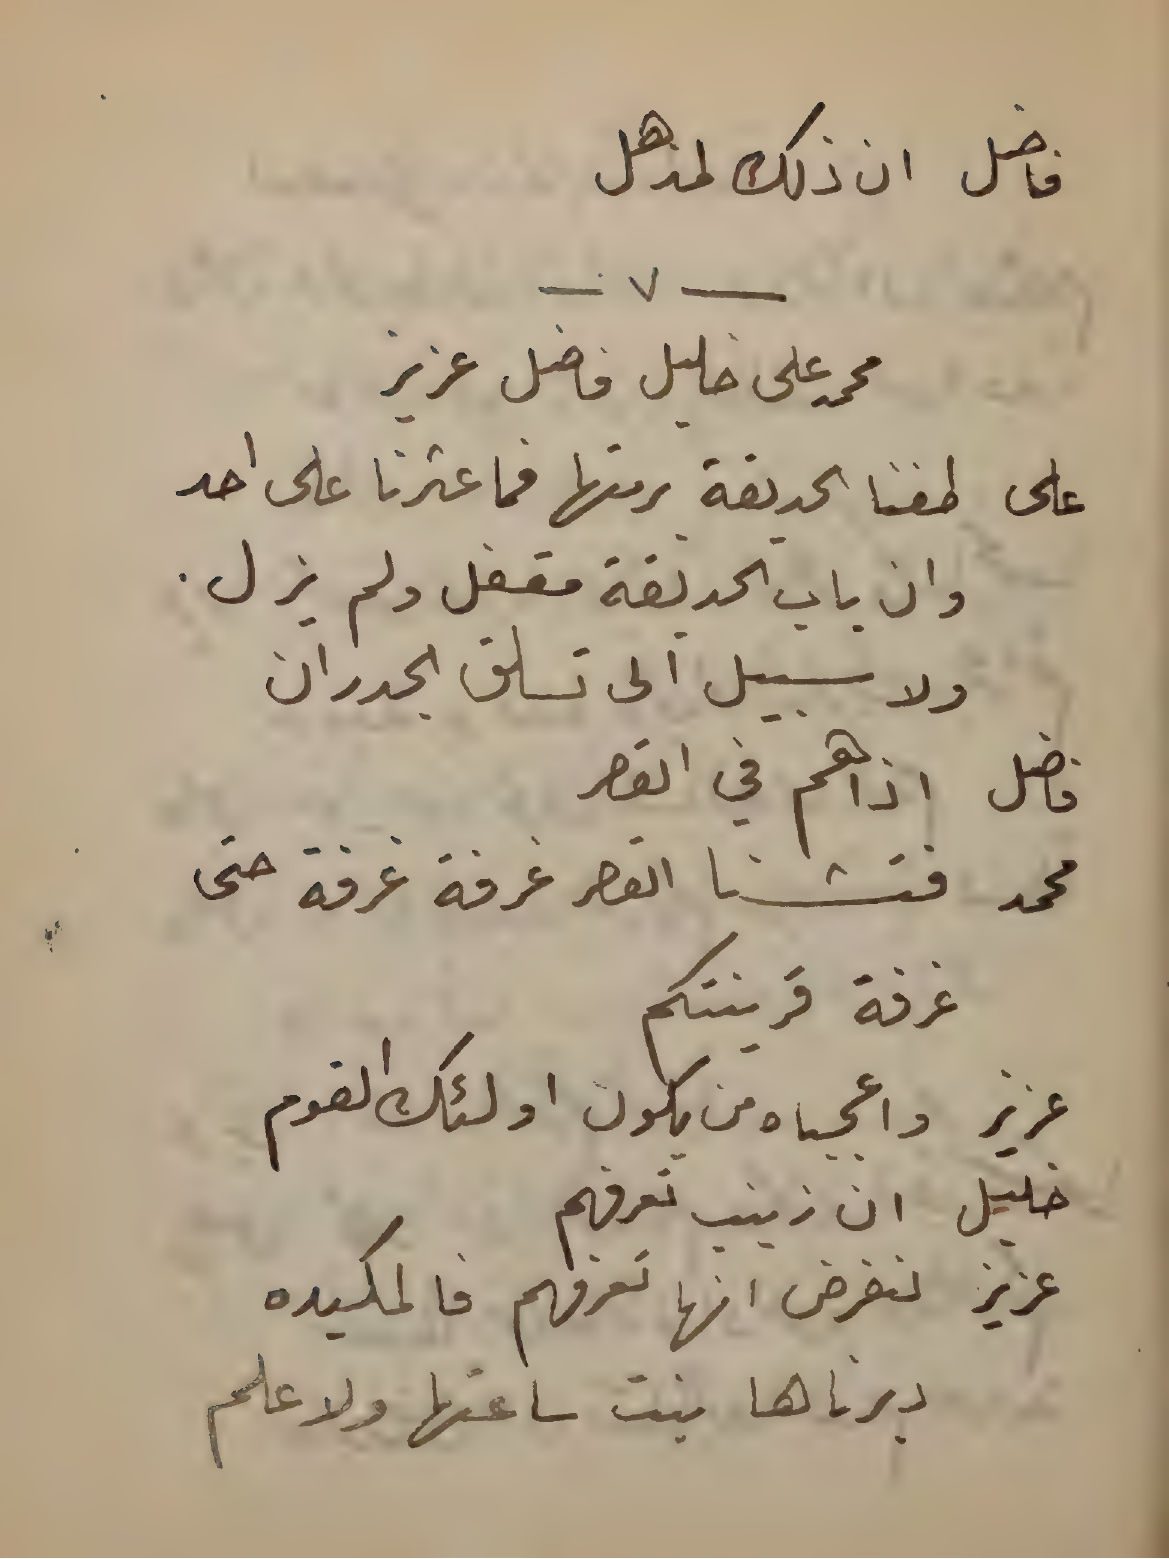 فاضل ان ذلك لمذهل
— ٧ —
محمد على خليل فاضل عزيز
على طفنا الحديقة برمتها فما عثرنا على احد
وان باب الحديقة مقفل ولم يزل .
ولا سبيل الى تسلق الجدران
فاضل اذا هم في القصر
محمد فتشنا القصر غرفة غرفة حتى
غرفة قرينتكم
عزيز واعجباه من يكون اولئك القوم
خليل ان زينب تعرفهم
عزيز لنفرض انها تعرفهم فالمكيده
دبرناها بنت ساعتها ولا علم